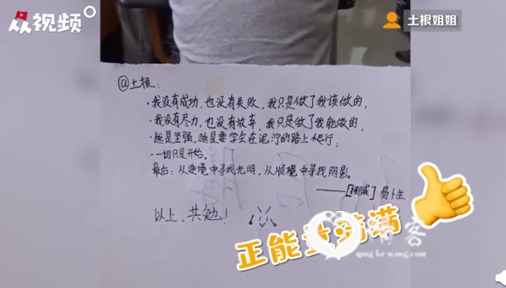 众视频
土根姐姐
@土根：
·我没有成功，也没有失败，我只是做了我该做的，
·我没有尽力，也没有放弃，我只是做了我能做的，
·越是坚强，越是要学会在泥泞的路上爬行；
·一切只是开始。
最后：从逆境中寻找光明，从顺境中寻找阴影。
——[挪威] 易卜生
以上，共勉！
正能量满满
qing ke wang.com